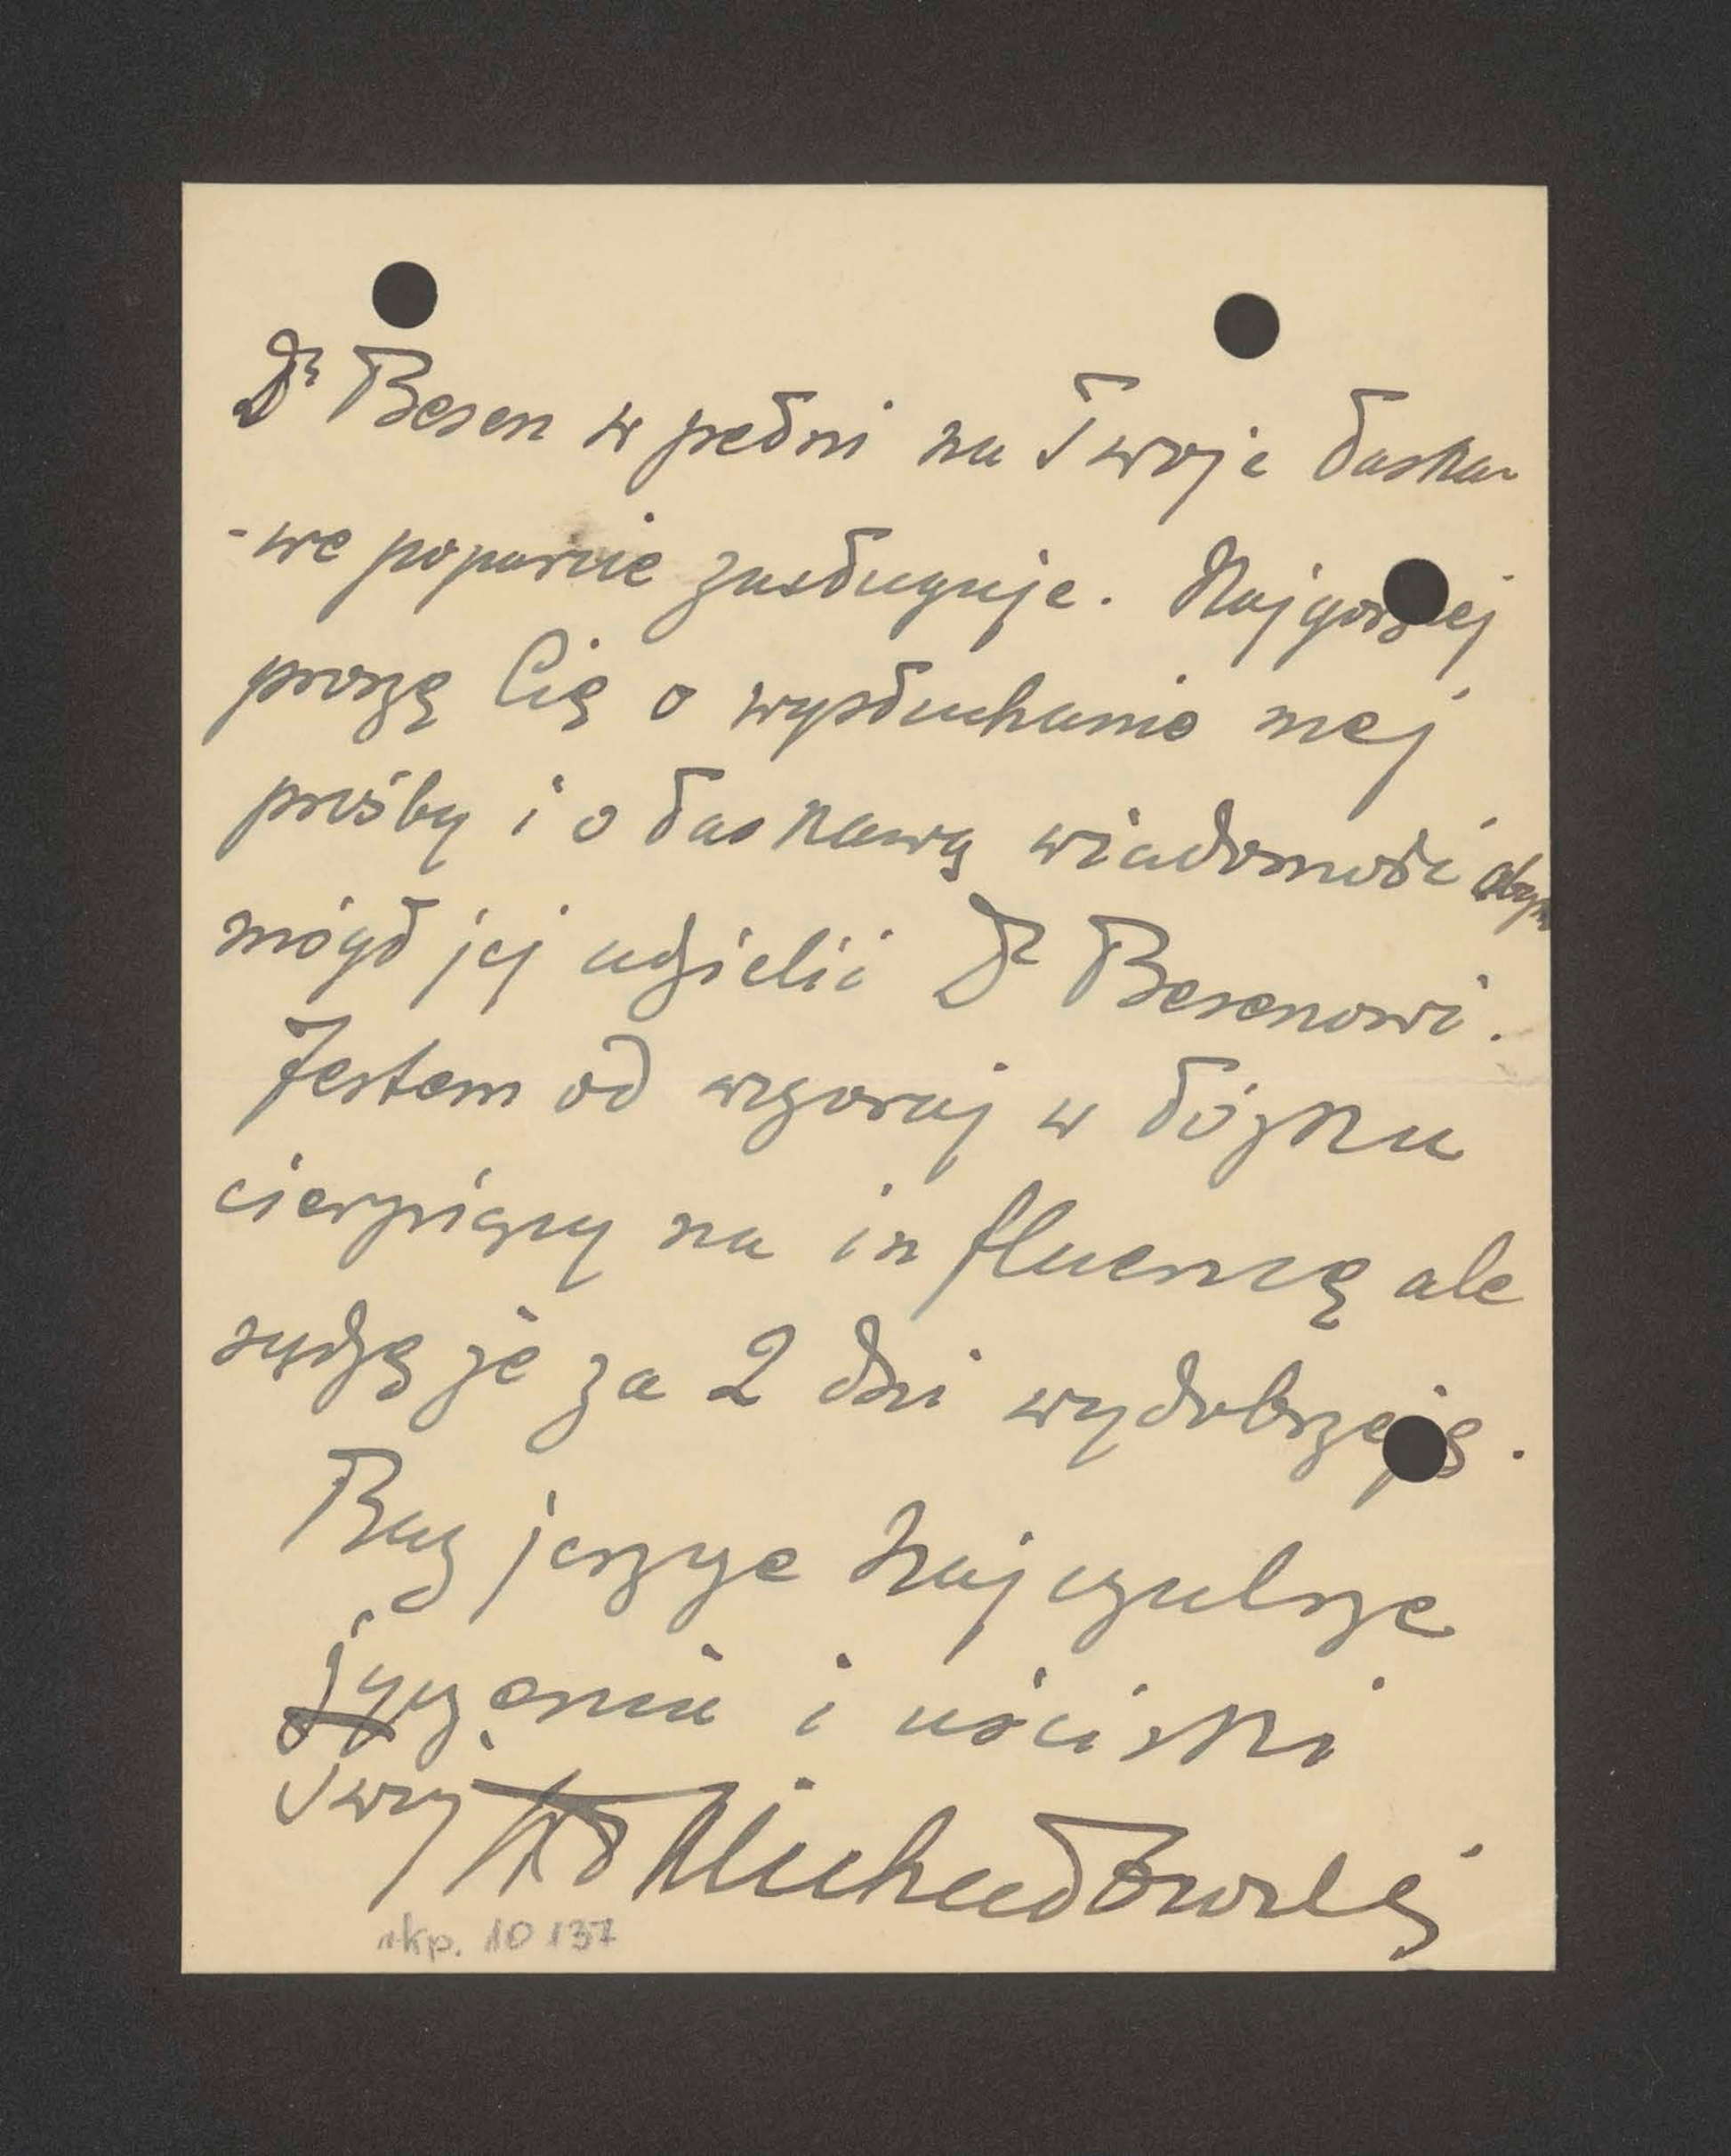 Dr Besen w pełni na Twoje łaska-
-we poparcie zasługuje. Najgoręcej
proszę Cię o wysłuchanie mej
prośby i o łaskawą wiadomość abym
mógł jej udzielić Dr Besenowi.
Jestem od wczoraj w łóżku
cierpiący na influencę ale
sądzę że za 2 dni wydobrzeję.
Raz jeszcze najczulsze
życzenia i uściski
Twój
rkp. 10 137